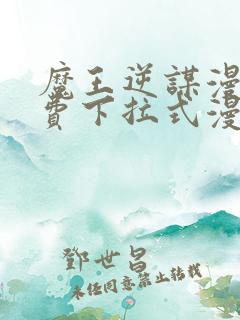 魔王逆謀漫
費下拉式漫
鄧世昌
未經同意禁止轉載